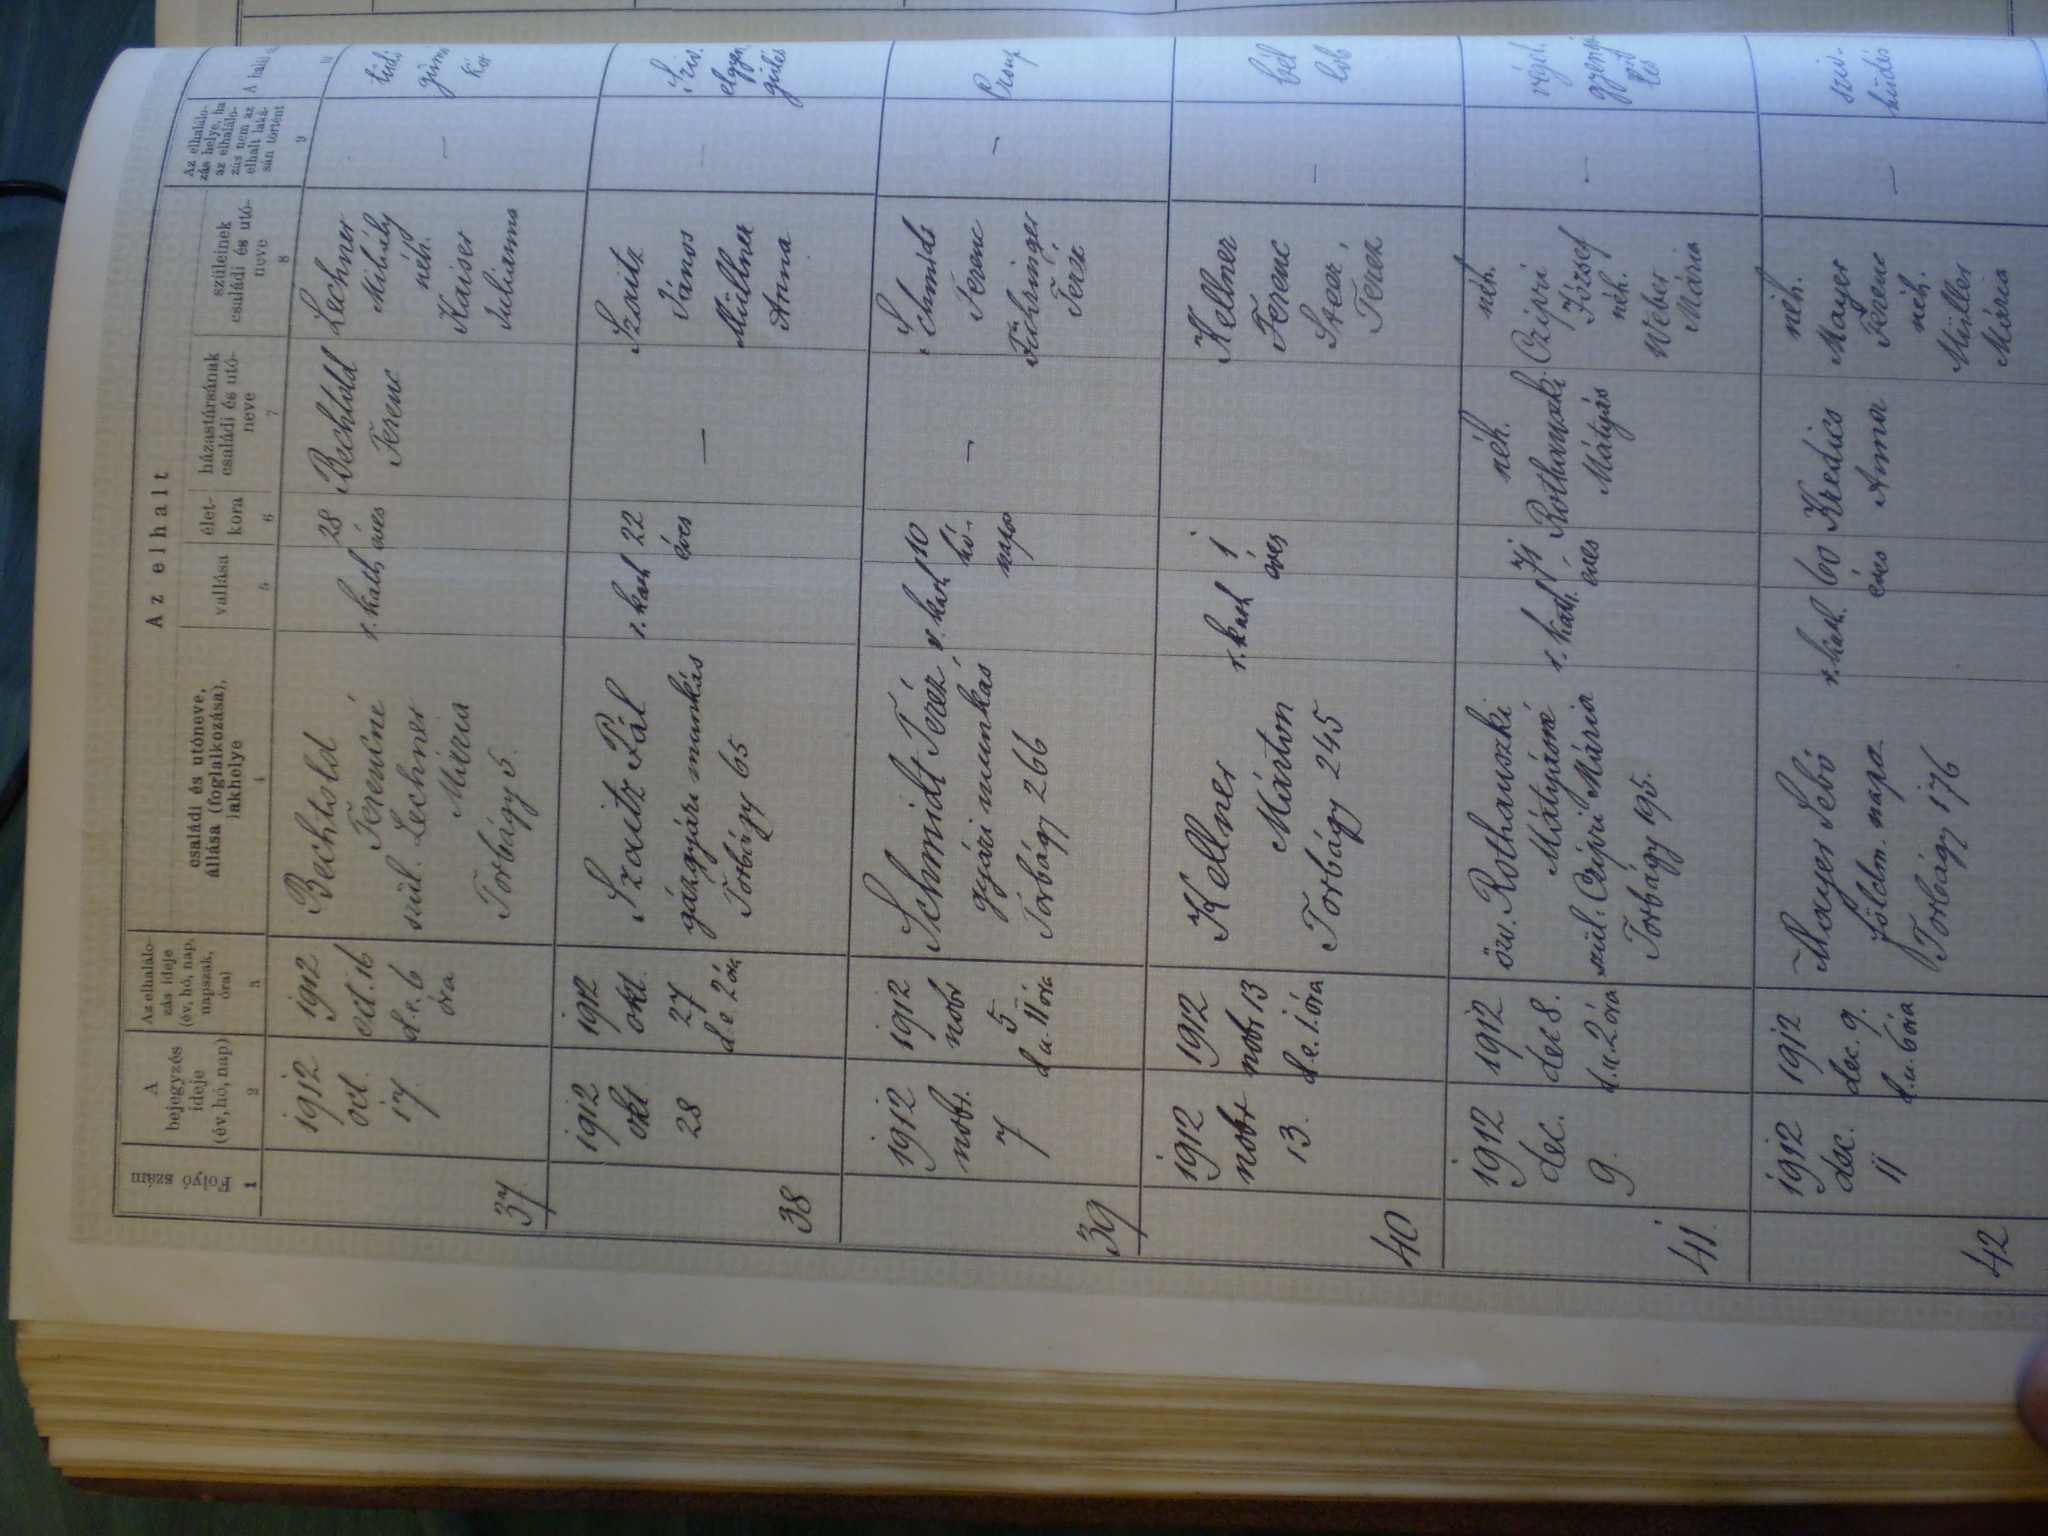 Az elhalt
Folyó szám
A bejegyzés ideje (év, hó, nap)
Az elhalálo-
zás ideje
(év, hó, nap,
napszak,
óra)
családi és utóneve,
állása (foglalkozása),
lakhelye
vallása
élet-
kora
házastársának
családi és utó-
neve
szüleinek
családi és utó-
neve
Az elhalálo-
zás helye, ha
az elhalálo-
zás nem az
elhalt laká-
sán történt
A halál
1 2 3 4 5 6 7 8 9
37
1912
oct.
17
1912
oct. 16
d. e. 6
óra
Bechtold
Ferencné
szül. Lechner
Mária
Torbágy 5.
r. kath.
28
éves
Bechtold
Ferenc
Lechner
Mihály
néh.
Kaiser
Julianna
—
tüdő
gümő
kór
38
1912
okt.
28
1912
okt.
27
d. e. 2 óra
Szaitz Pál
gázgyári munkás
Torbágy 65
r. kath
22
éves
—
Szaitz
János
Müllner
Anna
—
Szív.
39
1912
nobr.
7
1912
nobr
5
d. u. 11 óra
Schmidt Teréz
gyári munkás
Torbágy 266
r. kath
10
hó-
napos
—
Schmidt
Ferenc
Teréz
—
Croup
40
1912
nobr
13.
1912
nobr 13
d. e. 1 óra
Kellner
Márton
Torbágy 245
r. kath
1
éves
Kellner
Ferenc
Steer
Teréz
—
bél
lob
41
1912
dec.
9.
1912
dec 8.
d. u. 2 óra
özv. Rothauszki
Mátyásné
szül. Czipri Mária
Torbágy 195.
r. kath.
71
éves
néh.
Rothauszki
Mátyás
néh.
Czipri
József
néh.
Weber
Mária
—
végel.
gyengü
lés
42
1912
dec.
11
1912
dec. 9.
d. u. 6 óra
Mayer Sebő
földm. napsz.
Torbágy 176
r. kath.
60
éves
Kredics
Anna
néh.
Mayer
Ferenc
néh.
Miller
Mária
—
szív-
hüdés